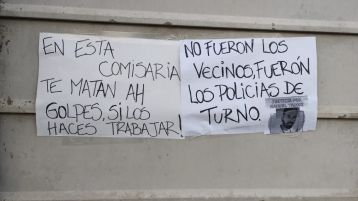 EN ESTA
COMISARIA
TE MATAN AH
GOLPES, SI LOS
HACES TRABAJAR!
NO FUERON LOS
VECINOS, FUERÓN
LOS POLICIAS DE
TURNO.
JUSTICIA POR